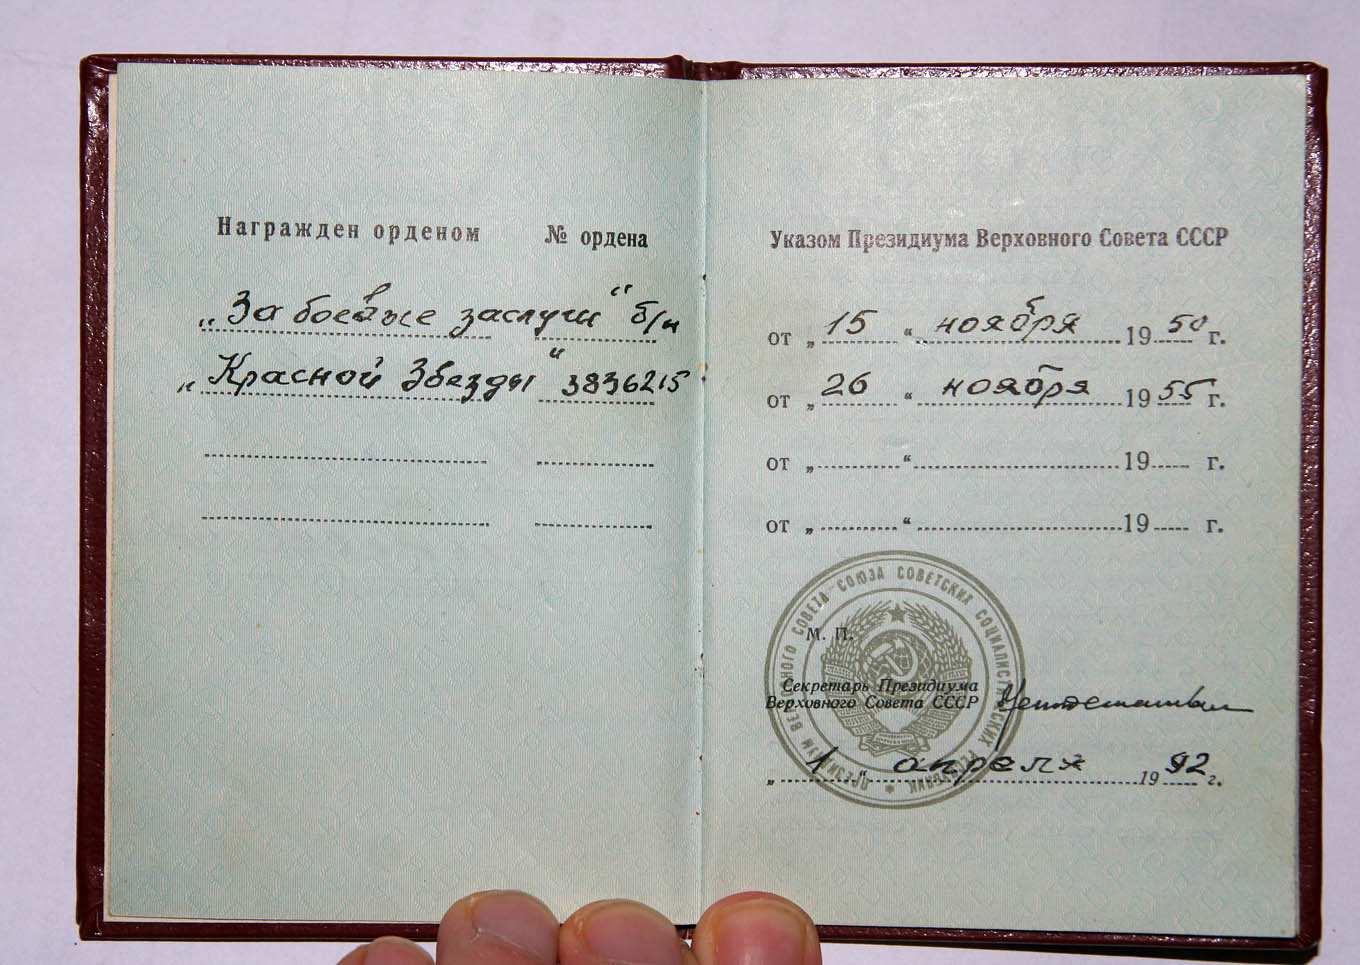 Награжден орденом № ордена
„За боевые заслуги“ б/н
„Красной Звезды“ 3836215
Указом Президиума Верховного Совета СССР
от „15“ ноября 1950 г.
от „26“ ноября 1955 г.
от „ “ 19 г.
от „ “ 19 г.
ПРЕЗИДИУМ ВЕРХОВНОГО СОВЕТА СОЮЗА СОВЕТСКИХ СОЦИАЛИСТИЧЕСКИХ РЕСПУБЛИК *
М. П.
Секретарь Президиума
Верховного Совета СССР
„1“ апреля 1992 г.